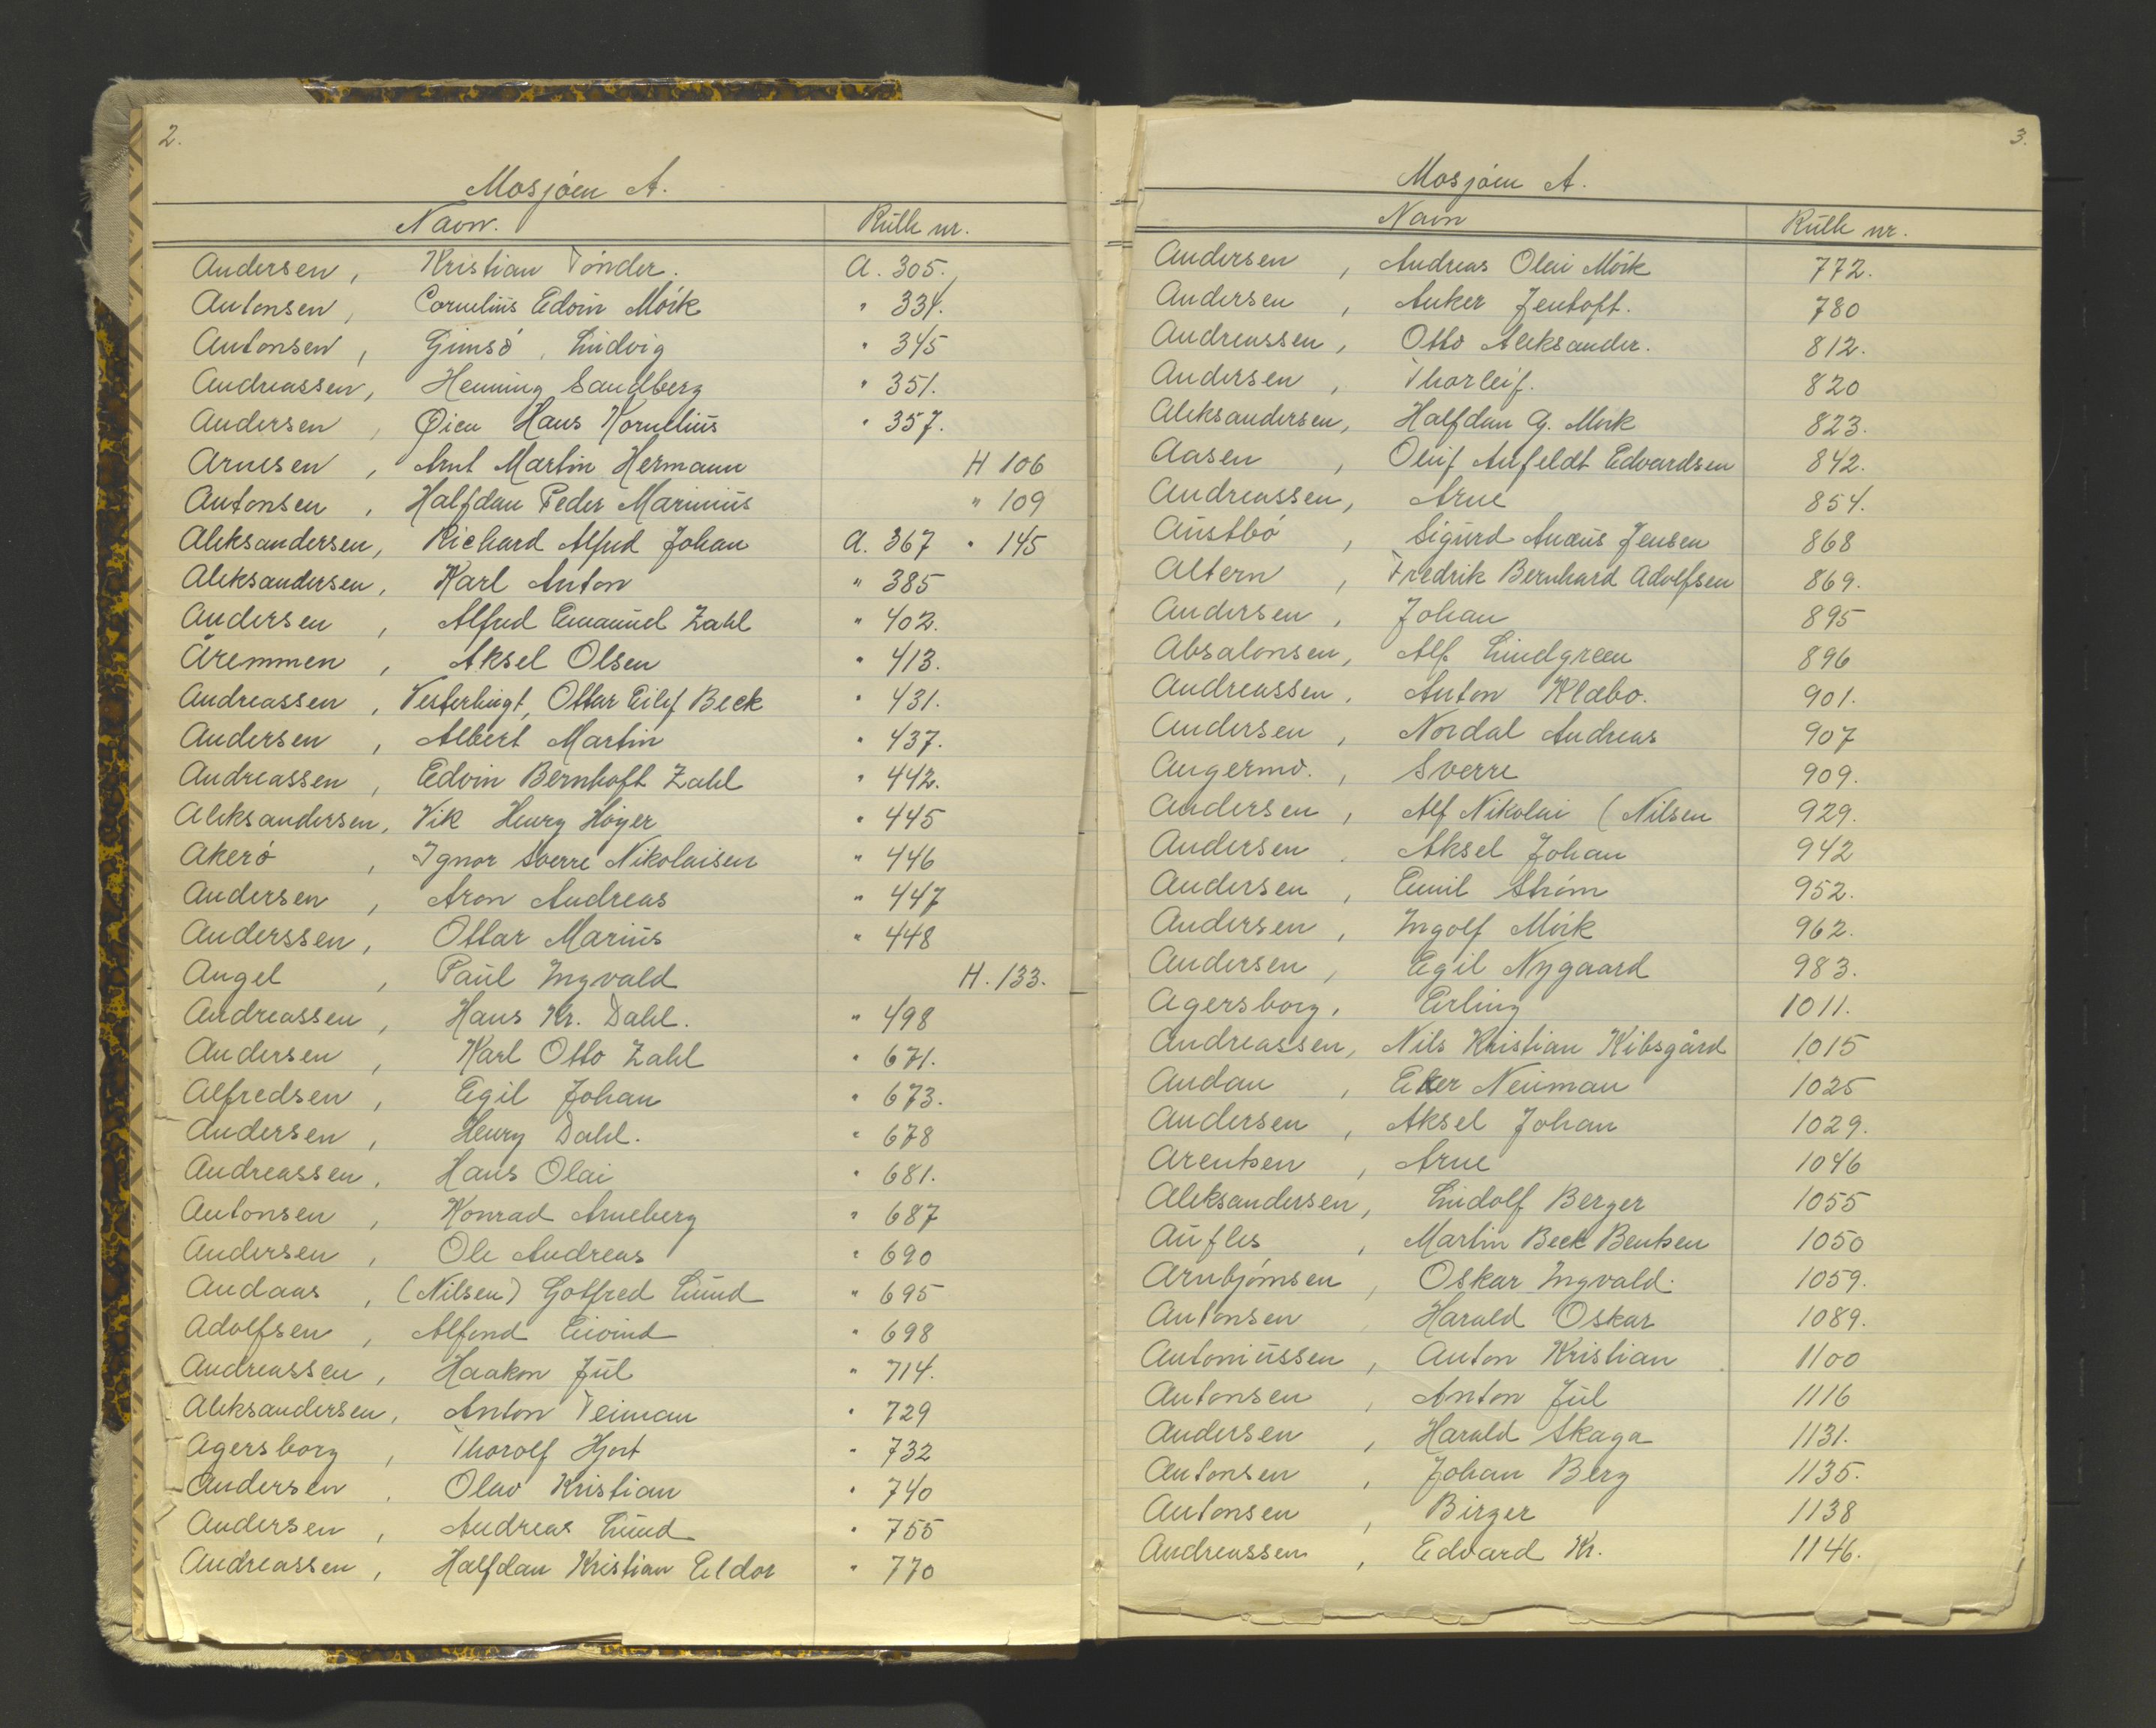 2.
Mosjøen A.
Navn. Rulle nr.
Andersen, Kristian Tönder. A. 305.
Antonsen, Cornelius Edvin Mörk " 334.
Antonsen, Gimsö, Ludvig " 345
Andreassen, Henning Sandberg " 351.
Andersen, Øien Hans Kornelius " 357.
Arnesen, Arnt Martin Hermann H 106
Antonsen, Halfdan Peder Marinius " 109
Aleksandersen, Richard Alfred Johan A. 367 " 145
Aleksandersen, Karl Anton " 385
Andersen, Alfred Emanuel Zahl " 402.
Åremmen, Aksel Olsen " 413.
Andreassen, Vesterlingt, Ottar Eilif Beck " 431.
Andersen, Albert Martin " 437.
Andreassen, Edvin Bernhoft Zahl " 442.
Aleksandersen, Vik Henry Höyer " 445
Akerö, Ignor Sverre Nikolaisen " 446
Andersen, Aron Andreas " 447
Anderssen, Ottar Marius " 448
Angel, Paul Ingvald H. 133.
Andreassen, Hans Kr. Dahl. " 498
Andersen, Karl Otto Zahl " 671.
Alfredsen, Egil Johan " 673.
Andersen, Henry Dahl. " 678
Andreassen, Hans Olai " 681.
Antonsen, Konrad Arneberg " 687
Andersen, Ole Andreas " 690
Andaas, (Nilsen) Gotfred Lund " 695
Adolfsen, Alfond Eivind " 698
Andreassen, Haakon Jul " 714.
Aleksandersen, Anton Teiman " 729
Agersborg, Thorolf Hjort " 732
Andersen, Olav Kristian " 740
Andersen, Andreas Lund " 755
Andreassen, Halfdan Kristian Eldor " 770
3.
Mosjøen A.
Navn Rulle nr.
Andersen, Andreas Olai Mörk 772.
Andersen, Anker Jentoft. 780
Andreassen, Otto Aleksander. 812.
Andersen, Thorleif. 820
Aleksandersen, Halfdan G. Mörk 823.
Aasen, Oluf Anfeldt Edvardsen 842.
Andreassen, Arne 854.
Austbö, Sigurd Ananus Jensen 868
Altern, Fredrik Bernhard Adolfsen 869.
Andersen, Johan 895
Absalonsen, Alf Lindgreen 896
Andreassen, Anton Klæbo. 901.
Andersen, Nordal Andreas 907
Angermo., Sverre 909.
Andersen, Alf Nikolai (Nilsen 929.
Andersen, Aksel Johan 942
Andersen, Emil Ström 952.
Andersen, Ingolf Mörk 962.
Andersen, Egil Nygaard 983.
Agersborg, Erling 1011.
Andreassen, Nils Kristian Kibsgård 1015
Andan, Eker Neuman 1025
Andersen, Aksel Johan 1029.
Arentsen, Arne 1046
Aleksandersen, Ludolf Berger 1055
Aufles, Martin Beck Bentsen 1050
Arnbjörnsen, Oskar Ingvald. 1059.
Antonsen, Harald Oskar 1089.
Antoniussen, Anton Kristian 1100
Antonsen, Anton Jul 1116
Andersen, Harald Skaga 1131.
Antonsen, Johan Berg 1135.
Antonsen, Birger 1138
Andreassen, Edvard Kr. 1146.